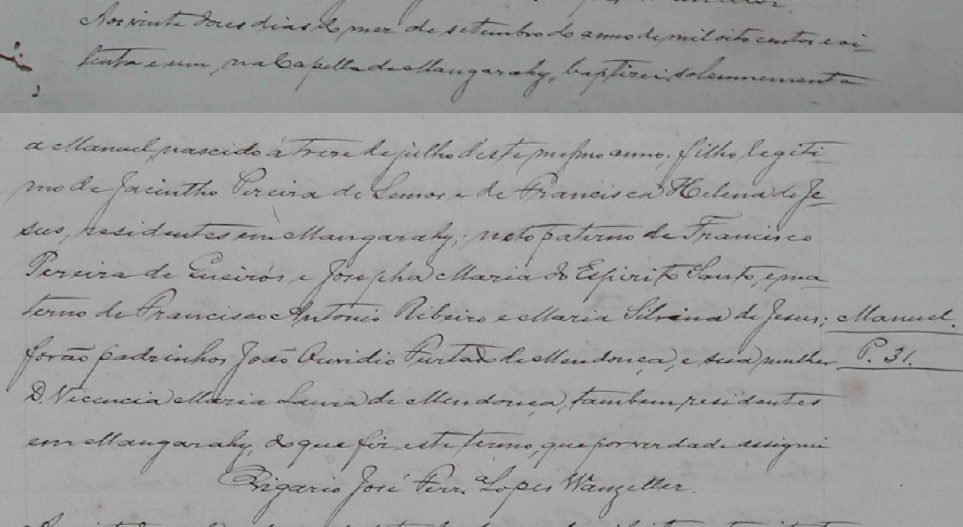 Aos vinte dous dias do mez de setembro do anno de mil oito centos e oi
tenta e um, na Capella de Mangarahy, baptizei solemnemente
a Manuel nascido à treze de julho deste mesmo anno, filho legiti
mo de Jacintho Pereira de Lemos e de Francisca Helena de Je
sus, residentes em Mangarahy; neto paterno de Francisco
Pereira de Queirós e Josepha Maria do Espirito Santo, e ma
terno de Francisco Antonio Ribeiro e Maria Silvina de Jesus;
Manuel.
forão padrinhos João Ouvidio Furtado de Mendonça, e sua mulher
P. 31.
D. Vicencia Maria Laura de Mendonça, tambem residentes
em Mangarahy, do que fiz este termo, que por verdade assignei
Vigario José Ferr.ª Lopes Wanzeller.